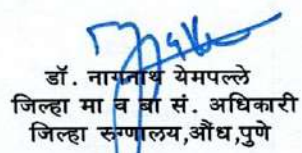 डॉ. नागनाथ येमपल्ले
जिल्हा मा व बा सं. अधिकारी
जिल्हा रुग्णालय,औंध,पुणे